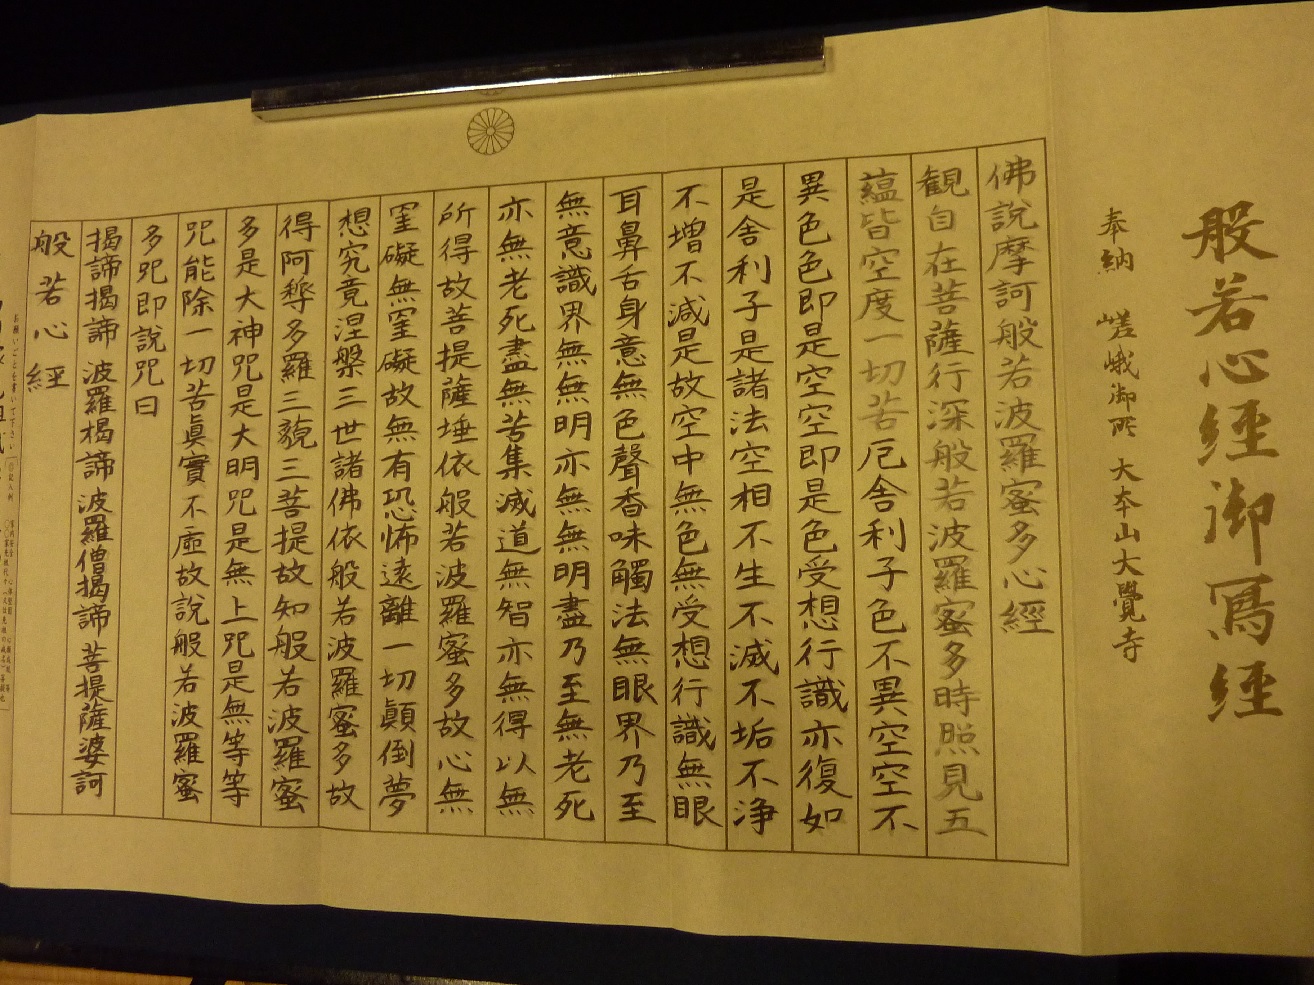 般若心經御寫經
奉納 嵯峨御所 大本山大覺寺
佛說摩訶般若波羅蜜多心經
観自在菩薩行深般若波羅蜜多時照見五
蘊皆空度一切苦厄舎利子色不異空空不
異色色即是空空即是色受想行識亦復如
是舎利子是諸法空相不生不滅不垢不浄
不増不減是故空中無色無受想行識無眼
耳鼻舌身意無色聲香味觸法無眼界乃至
無意識界無無明亦無無明盡乃至無老死
亦無老死盡無苦集滅道無智亦無得以無
所得故菩提薩埵依般若波羅蜜多故心無
罣礙無罣礙故無有恐怖遠離一切顛倒夢
想究竟涅槃三世諸佛依般若波羅蜜多故
得阿耨多羅三藐三菩提故知般若波羅蜜
多是大神咒是大明咒是無上咒是無等等
咒能除一切苦眞實不虚故說般若波羅蜜
多咒即說咒曰
揭諦揭諦 波羅揭諦 波羅僧揭諦 菩提薩婆訶
般若心經
お願いごとを書いて下さい